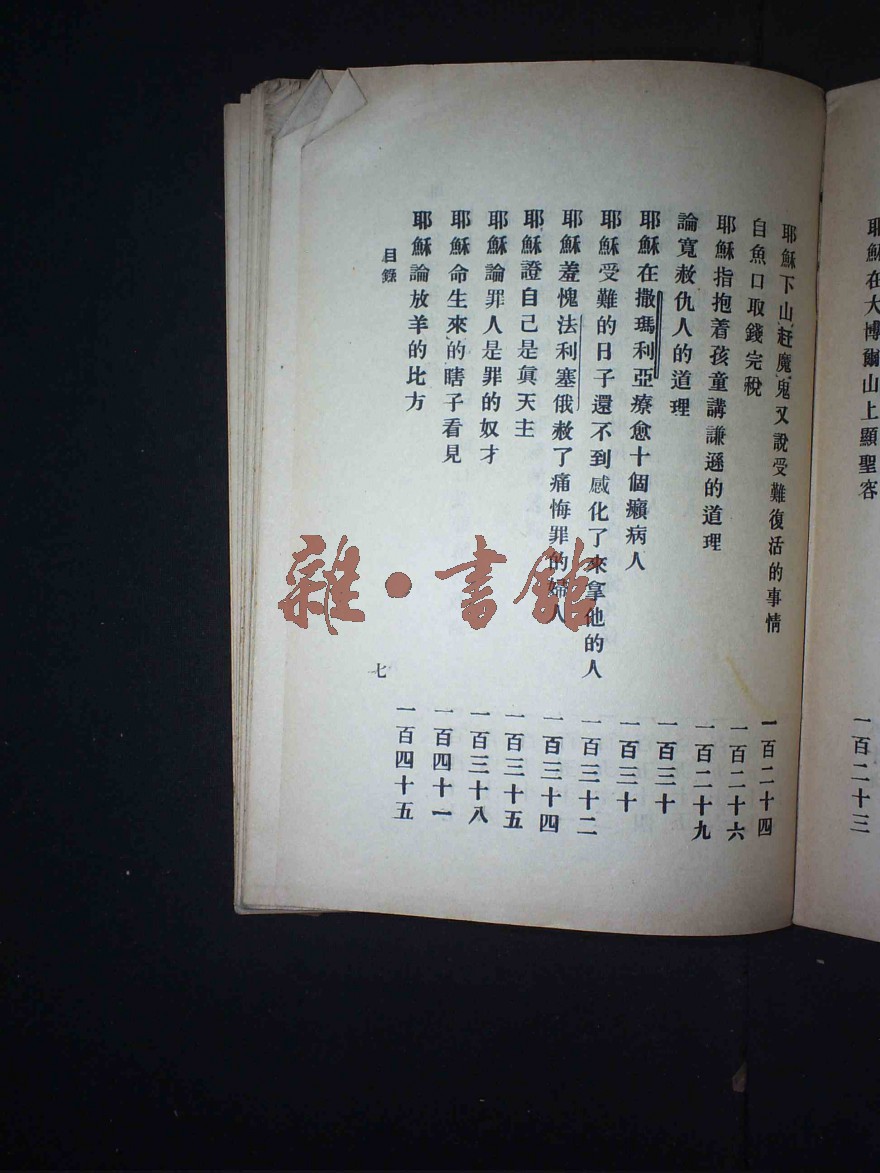 耶穌在大博爾山上顯聖容 一百二十三
耶穌下山赶魔鬼又說受難復活的事情 一百二十四
自魚口取錢完稅 一百二十六
耶穌指抱着孩童講謙遜的道理 一百二十九
論寬赦仇人的道理 一百三十
耶穌在撒瑪利亞療愈十個癩病人 一百三十
耶穌受難的日子還不到感化了來拿他的人 一百三十二
耶穌羞愧法利塞俄赦了痛悔罪的婦人 一百三十四
耶穌證自己是眞天主 一百三十五
耶穌論罪人是罪的奴才 一百三十八
耶穌命生來的瞎子看見 一百四十一
耶穌論放羊的比方 一百四十五
目錄
七
雜·書館